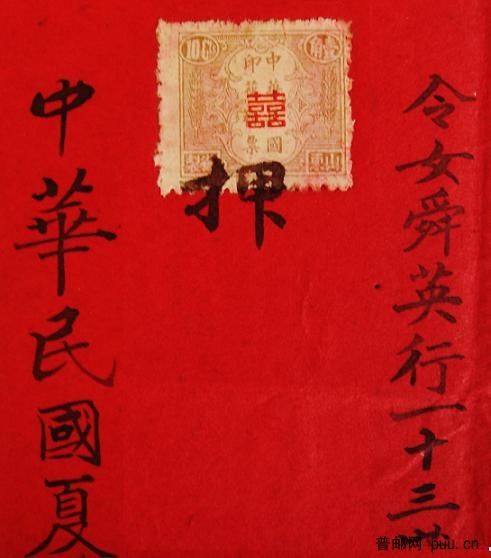 令女舜英行一十三
壹角
10Cs
中
國
印
票
囍
押
中華民國夏
普邮网 puu.cn